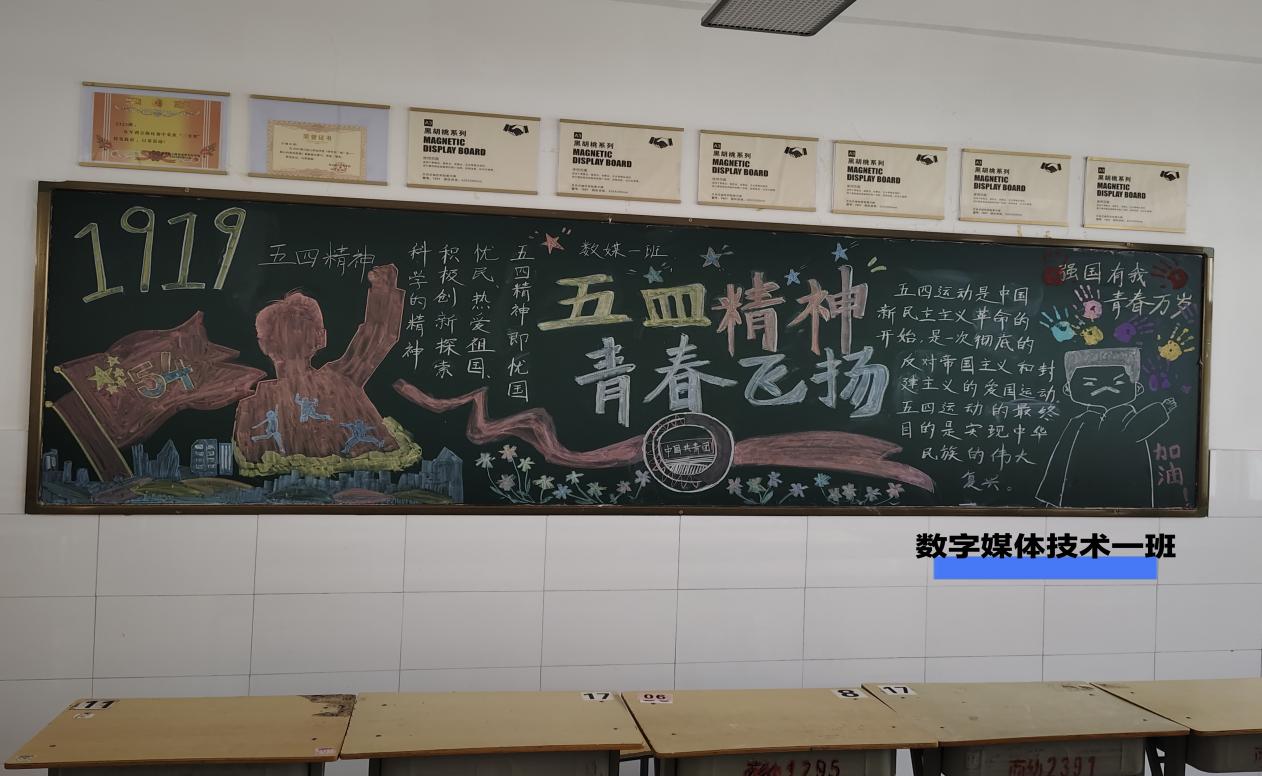 荣誉证书
A3
黑胡桃系列
MAGNETIC
DISPLAY BOARD
A3
黑胡桃系列
MAGNETIC
DISPLAY BOARD
A3
黑胡桃系列
MAGNETIC
DISPLAY BOARD
A3
黑胡桃系列
MAGNETIC
DISPLAY BOARD
A3
黑胡桃系列
MAGNETIC
DISPLAY BOARD
A3
黑胡桃系列
MAGNETIC
DISPLAY BOARD
1919
五四精神
54
五四精神即忧国
忧民、热爱祖国、
积极创新探索
科学的精神
数媒一班
五四精神
青春飞扬
中国共青团
五四运动是中国
新民主主义革命的
开始,是一次彻底的
反对帝国主义和封
建主义的爱国运动
五四运动的最终
目的是实现中华
民族的伟大
复兴。
强国有我
青春万岁
加油!
数字媒体技术一班
11
17
06
8
17
1295
2391